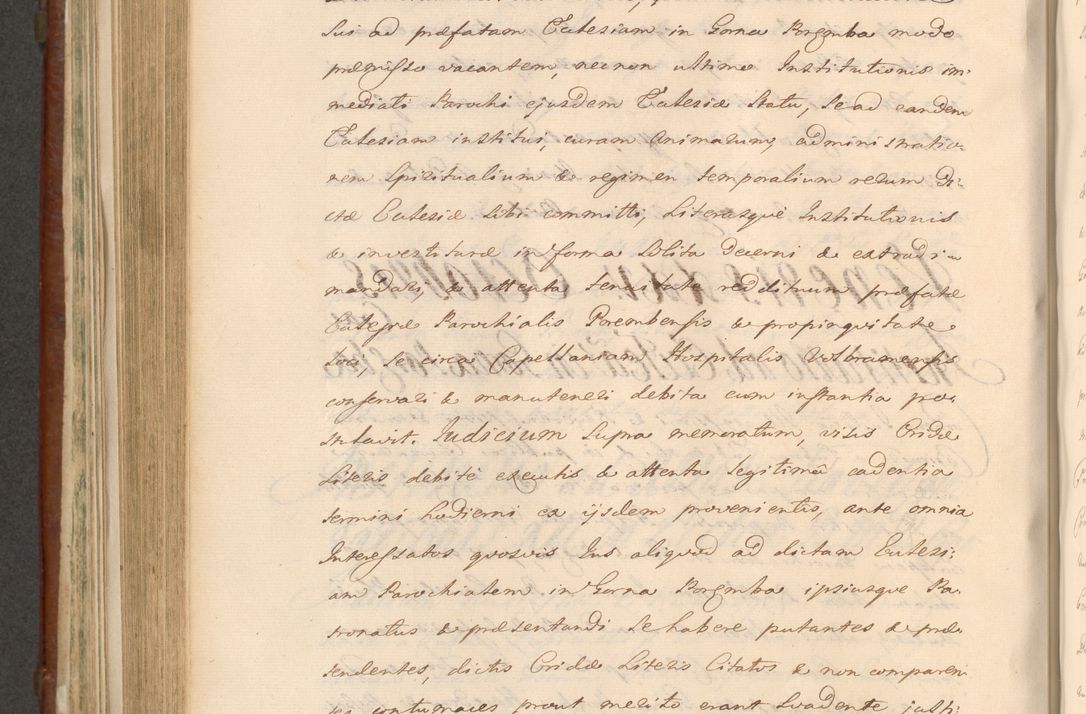 sus ad præfatam Eclesiam in Gorna Poręmba modo
præmisso vacantem, nec non ultimo Institutionis im-
mediati Parochi ejusdem Eclesiæ Statu, Se ad eandem
Eclesiam institui, curam Animarum, administratio-
nem Spiritualium & regimen temporalium rerum di-
ctæ Eclesiæ Sibi committi, Literasque Institutionis
& investituræ in forma Solita decerni & extradi
mandari, & attenta tenuitate reddituum præfatæ
Eclesiæ Parochialis Porembensis & propinquitate
loci, se circa Capellaniam Hospitalis Wolbramensis
conservari & manuteneri debita cum instantia po-
stulavit. Iudicium Supra memoratum, visis Cridæ
Literis debitè executis & attenta legitima cadentia
termini hodierni ex ijsdem provenientis, ante omnia
Interessatos quosvis Ius aliquod ad dictam Eclesi-
am Parochialem in Gorna Poręmba ipsiusque Pa-
tronatus & præsentandi Se habere putantes & præ-
tendentes, dictis Cridæ Literis Citatos & non comparen
tes contumaces prout merito erant Svadente justi-